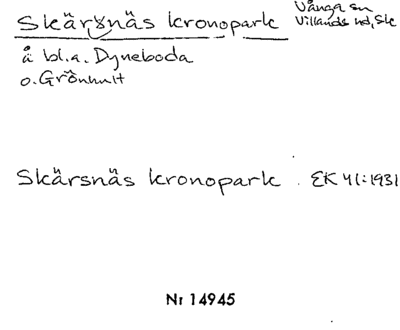 Skärsnäs kronopark
Vånga sn
Villands hd, Sk
å bl.a. Dyneboda
o. Grönhult
Skärsnäs kronopark EK 41:1931
Nr 14945